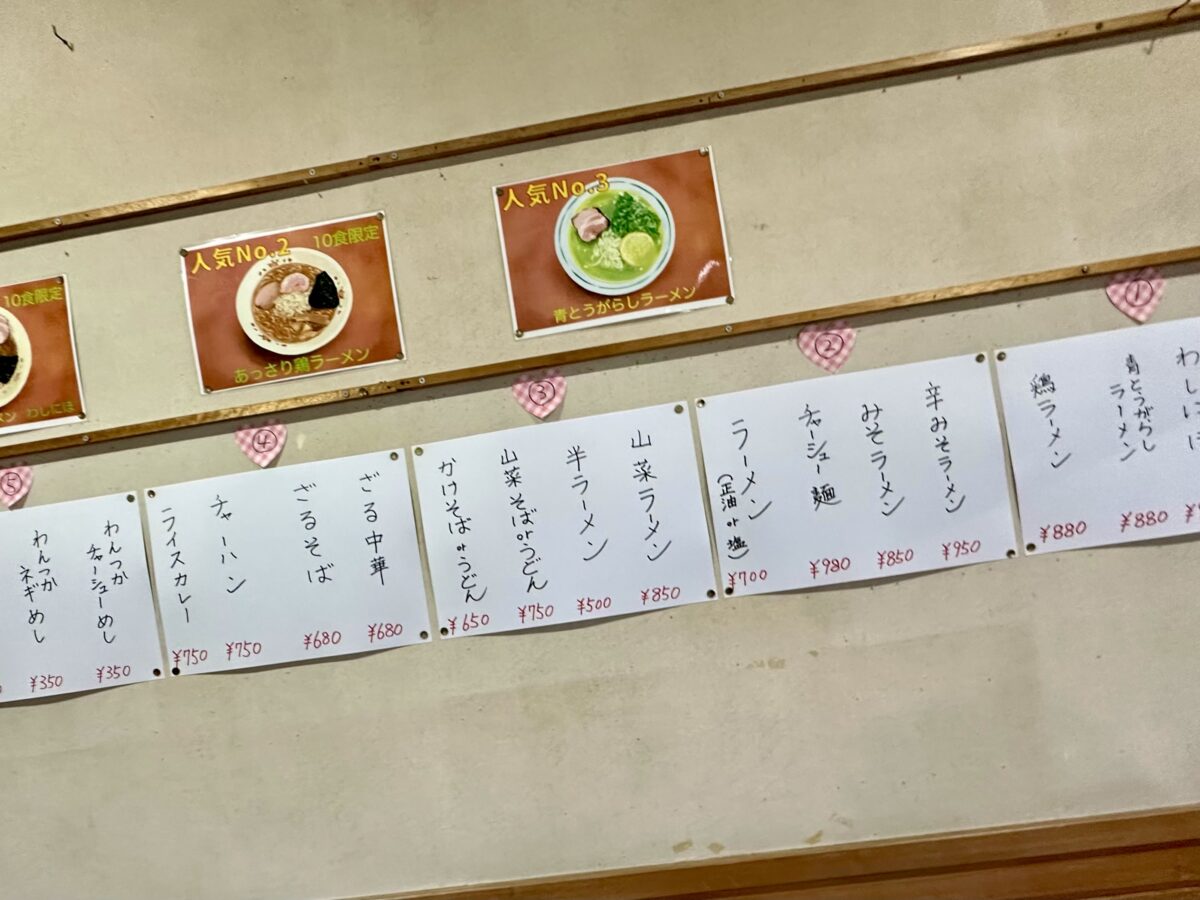 10食限定
わしにぼ
人気No.2
10食限定
あっさり鶏ラーメン
人気No.3
青とうがらしラーメン
①
わしにぼ
青とうがらし
ラーメン
¥880
鶏ラーメン
¥880
②
辛みそラーメン
¥950
みそラーメン
¥850
チャーシュー麺
¥980
ラーメン
(正油or塩)
¥700
③
山菜ラーメン
¥850
半ラーメン
¥500
山菜そばorうどん
¥750
かけそばorうどん
¥650
④
ざる中華
¥680
ざるそば
¥680
チャーハン
¥750
ライスカレー
¥750
⑤
わんつか
チャーシューめし
¥350
わんつか
ネギめし
¥350